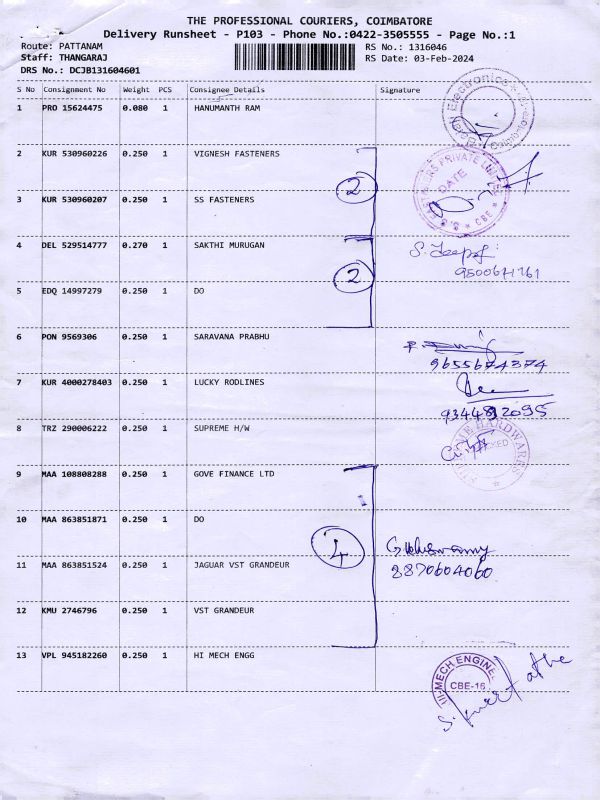 THE PROFESSIONAL COURIERS, COIMBATORE
Delivery Runsheet - P103 - Phone No.:0422-3505555 - Page No.:1
Route: PATTANAM
RS No.: 1316046
Staff: THANGARAJ
RS Date: 03-Feb-2024
DRS No.: DCJB131604601
S No Consignment No Weight PCS Consignee Details Signature
1 PRO 15624475 0.080 1 HANUMANTH RAM
Electronics
2 KUR 530960226 0.250 1 VIGNESH FASTENERS
PRIVATE
DATE
CBE
2
3 KUR 530960207 0.250 1 SS FASTENERS
4 DEL 529514777 0.270 1 SAKTHI MURUGAN
2
5 EDQ 14997279 0.250 1 DO
6 PON 9569306 0.250 1 SARAVANA PRABHU
9655674374
7 KUR 4000278403 0.250 1 LUCKY RODLINES
8 TRZ 290006222 0.250 1 SUPREME H/W
HARDWARES
9 MAA 108808288 0.250 1 GOVE FINANCE LTD
10 MAA 863851871 0.250 1 DO
4
11 MAA 863851524 0.250 1 JAGUAR VST GRANDEUR
8870604060
12 KMU 2746796 0.250 1 VST GRANDEUR
13 VPL 945182260 0.250 1 HI MECH ENGG
HI-MECH ENGINE
CBE-16